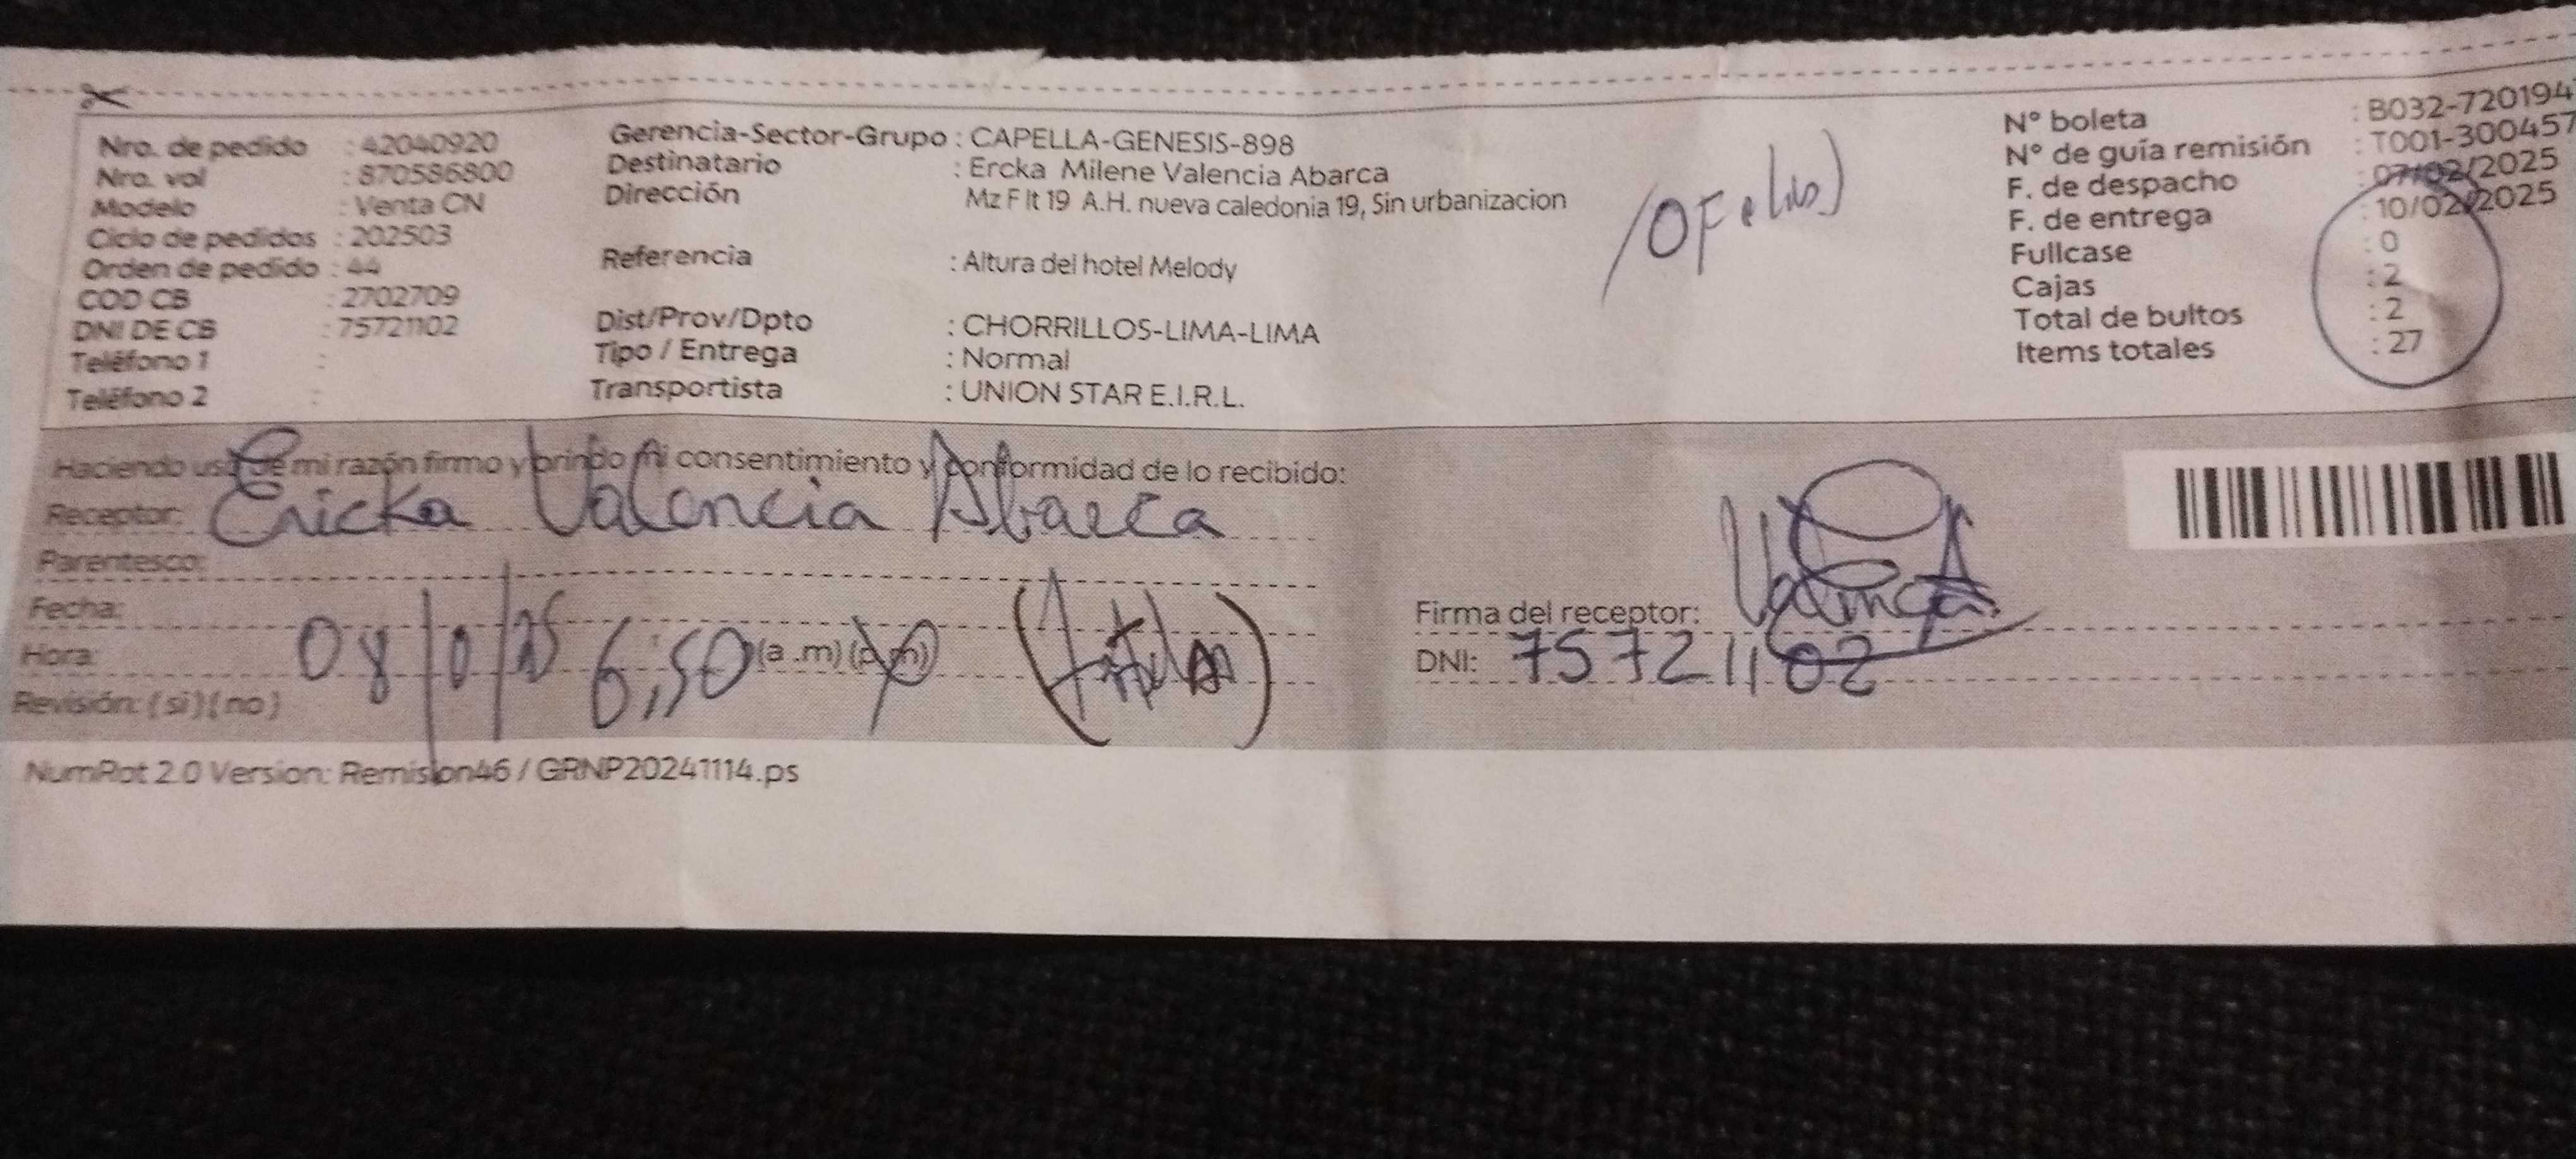 Nro. de pedido : 42040920
Nro. vol : 870586800
Modelo : Venta CN
Ciclo de pedidos : 202503
Orden de pedido : 44
COD CB : 2702709
DNI DE CB : 75721102
Teléfono 1 :
Teléfono 2 :
Gerencia-Sector-Grupo : CAPELLA-GENESIS-898
Destinatario : Ercka Milene Valencia Abarca
Dirección Mz F lt 19 A.H. nueva caledonia 19, Sin urbanizacion
Referencia : Altura del hotel Melody
Dist/Prov/Dpto : CHORRILLOS-LIMA-LIMA
Tipo / Entrega : Normal
Transportista : UNION STAR E.I.R.L.
N° boleta : B032-720194
N° de guía remisión : T001-300457
F. de despacho : 07/02/2025
F. de entrega : 10/02/2025
Fullcase : 0
Cajas : 2
Total de bultos : 2
Items totales : 27
Haciendo uso de mi razón firmo y brindo mi consentimiento y conformidad de lo recibido:
Receptor: Ericka Valencia Abarca
Parentesco:
Fecha: 08
Hora: 6:50 (a .m) (p.m)
Revisión: (si) (no)
Firma del receptor:
DNI: 75721102
NumRot 2.0 Version: Remision46 / GRNP20241114.ps